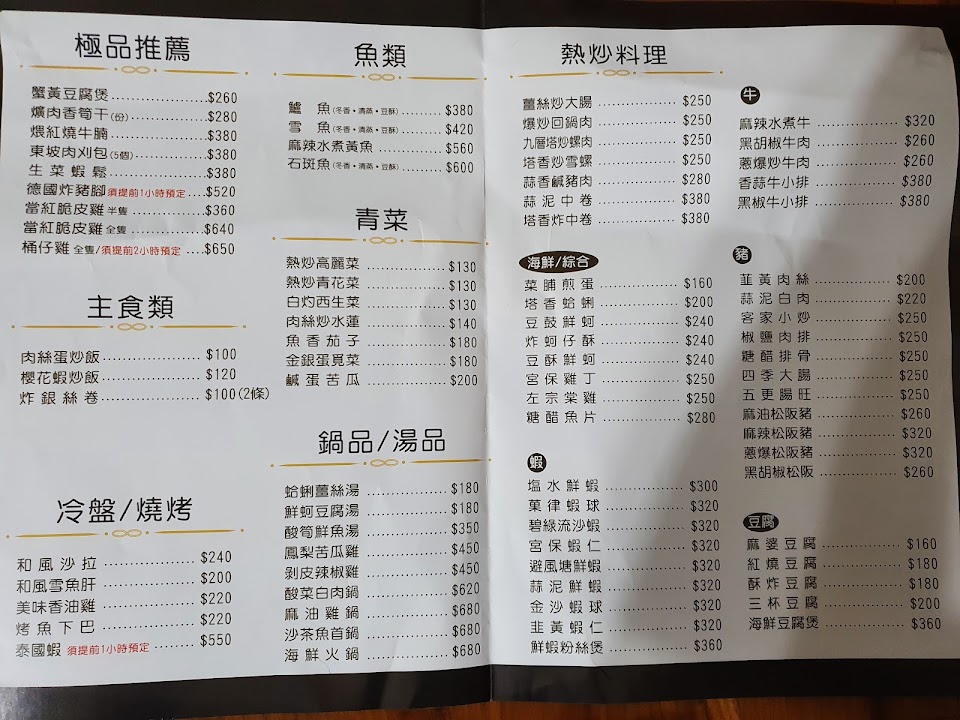 極品推薦
蟹黃豆腐煲 $260
爌肉香筍干(份) $280
煨紅燒牛腩 $380
東坡肉刈包(5個) $380
生菜蝦鬆 $380
德國炸豬腳 須提前1小時預定 $520
當紅脆皮雞 半隻 $360
當紅脆皮雞 全隻 $640
桶仔雞 全隻/須提前2小時預定 $650
主食類
肉絲蛋炒飯 $100
櫻花蝦炒飯 $120
炸銀絲卷 $100(2條)
冷盤/燒烤
和風沙拉 $240
和風雪魚肝 $200
美味香油雞 $220
烤魚下巴 $220
泰國蝦 須提前1小時預定 $550
魚類
鱸魚(冬香•清蒸•豆酥) $380
雪魚(冬香•清蒸•豆酥) $420
麻辣水煮黃魚 $560
石斑魚(冬香•清蒸•豆酥) $600
青菜
熱炒高麗菜 $130
熱炒青花菜 $130
白灼西生菜 $130
肉絲炒水蓮 $140
魚香茄子 $180
金銀蛋莧菜 $180
鹹蛋苦瓜 $200
鍋品/湯品
蛤蜊薑絲湯 $180
鮮蚵豆腐湯 $180
酸筍鮮魚湯 $350
鳳梨苦瓜雞 $450
剝皮辣椒雞 $450
酸菜白肉鍋 $620
麻油雞鍋 $680
沙茶魚首鍋 $680
海鮮火鍋 $680
熱炒料理
薑絲炒大腸 $250
爆炒回鍋肉 $250
九層塔炒螺肉 $250
塔香炒雪螺 $250
蒜香鹹豬肉 $280
蒜泥中卷 $380
塔香炸中卷 $380
海鮮/綜合
菜脯煎蛋 $160
塔香蛤蜊 $200
豆鼓鮮蚵 $240
炸蚵仔酥 $240
豆酥鮮蚵 $240
宮保雞丁 $250
左宗棠雞 $250
糖醋魚片 $280
蝦
塩水鮮蝦 $300
菓律蝦球 $320
碧綠流沙蝦 $320
宮保蝦仁 $320
避風塘鮮蝦 $320
蒜泥鮮蝦 $320
金沙蝦球 $320
韭黃蝦仁 $320
鮮蝦粉絲煲 $360
牛
麻辣水煮牛 $320
黑胡椒牛肉 $260
蔥爆炒牛肉 $260
香蒜牛小排 $380
黑椒牛小排 $380
豬
韭黃肉絲 $200
蒜泥白肉 $220
客家小炒 $250
椒鹽肉排 $250
糖醋排骨 $250
四季大腸 $250
五更腸旺 $250
麻油松阪豬 $260
麻辣松阪豬 $320
蔥爆松阪豬 $320
黑胡椒松阪 $260
豆腐
麻婆豆腐 $160
紅燒豆腐 $180
酥炸豆腐 $180
三杯豆腐 $200
海鮮豆腐煲 $360